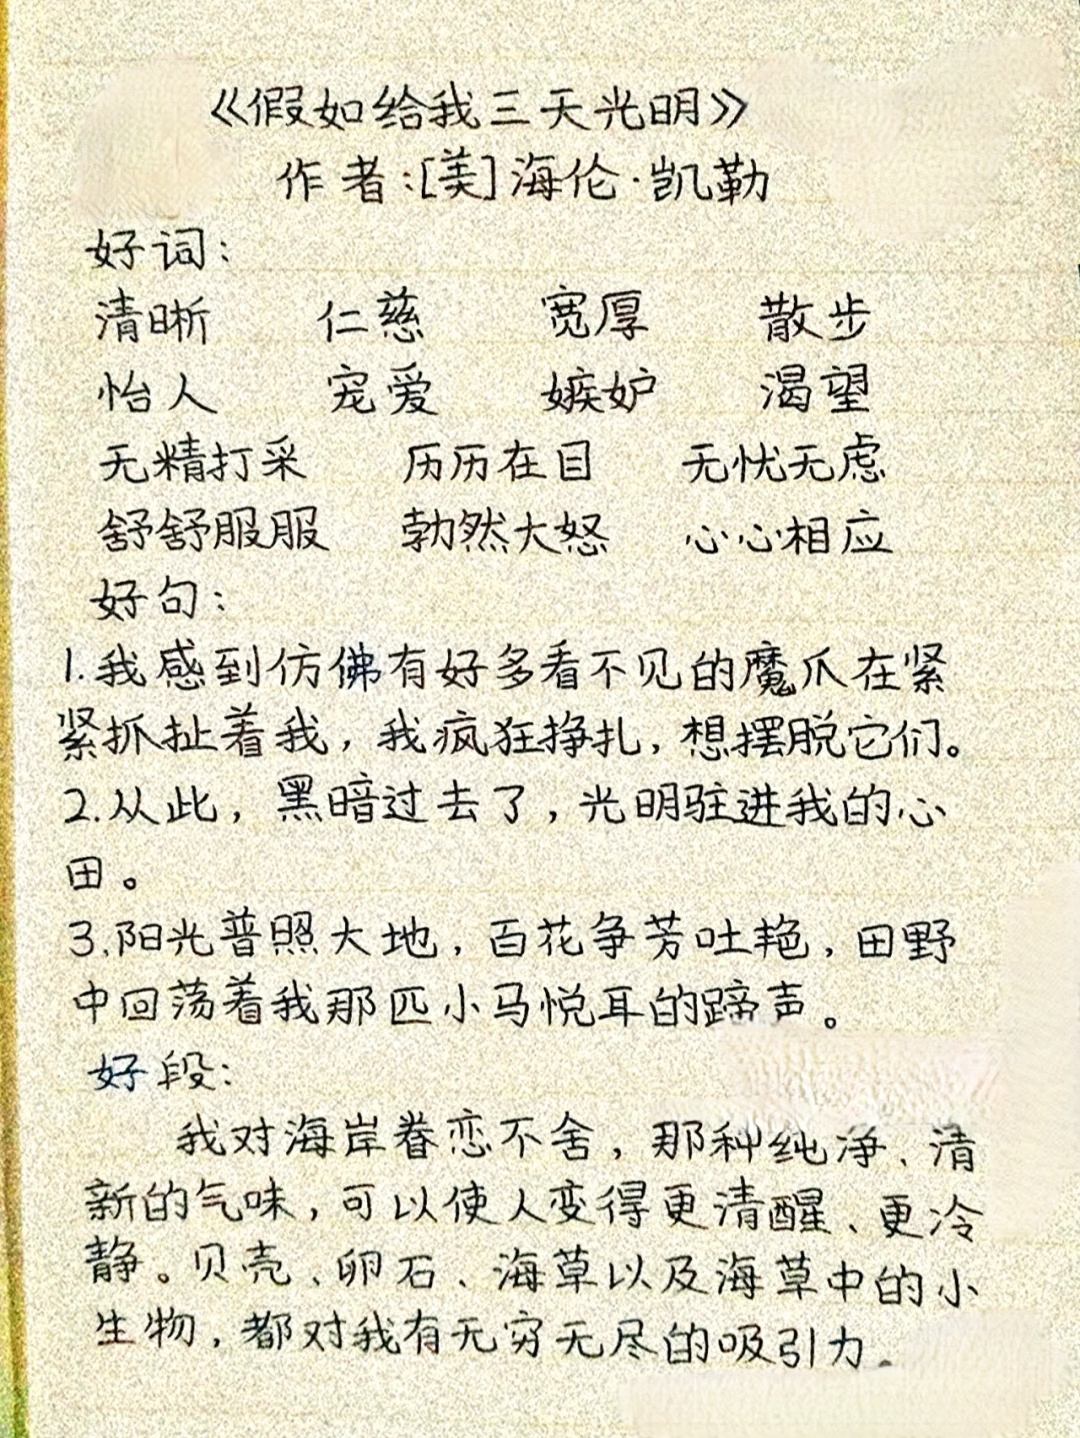 《假如给我三天光明》
作者:[美]海伦·凯勒
好词:
清晰 仁慈 宽厚 散步
怡人 宠爱 嫉妒 渴望
无精打采 历历在目 无忧无虑
舒舒服服 勃然大怒 心心相应
好句:
1.我感到仿佛有好多看不见的魔爪在紧
紧抓扯着我,我疯狂挣扎,想摆脱它们。
2.从此,黑暗过去了,光明驻进我的心
田。
3.阳光普照大地,百花争芳吐艳,田野
中回荡着我那匹小马悦耳的蹄声。
好段:
我对海岸眷恋不舍,那种纯净、清
新的气味,可以使人变得更清醒、更冷
静。贝壳、卵石、海草以及海草中的小
生物,都对我有无穷无尽的吸引力。